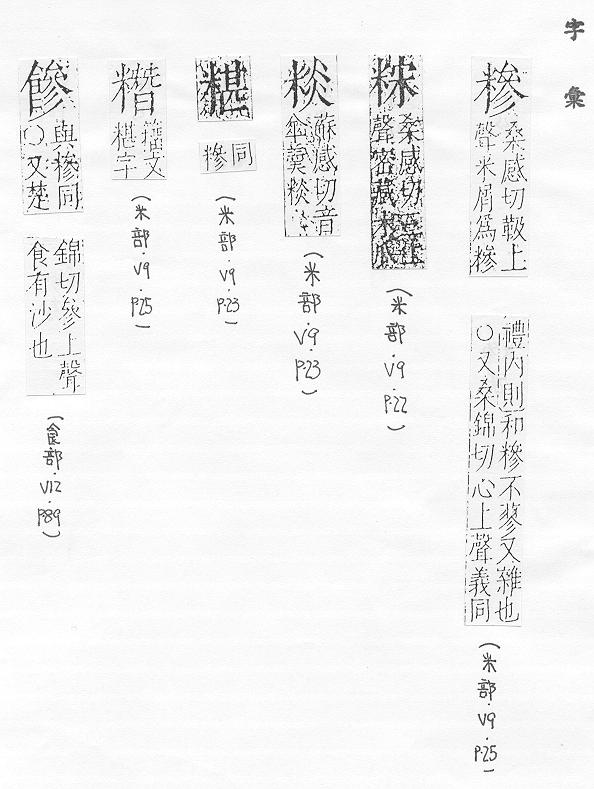 字彙
糝
桑感切上
聲米屑爲糝
禮內則和糝不蓼又雜也
○又桑錦切心上聲義同
(米部·V9·P.25)
桑感切
聲密藏木瓜
(米部·V9·P.22)
蘇感切音
傘羹
(米部·V9·P.23)
糂
同糝
(米部·V9·P.23)
糣
籒文
糂字
(米部·V9·P.25)
與糝同
○又楚
錦切參上聲
食有沙也
(食部·V12·P.89)